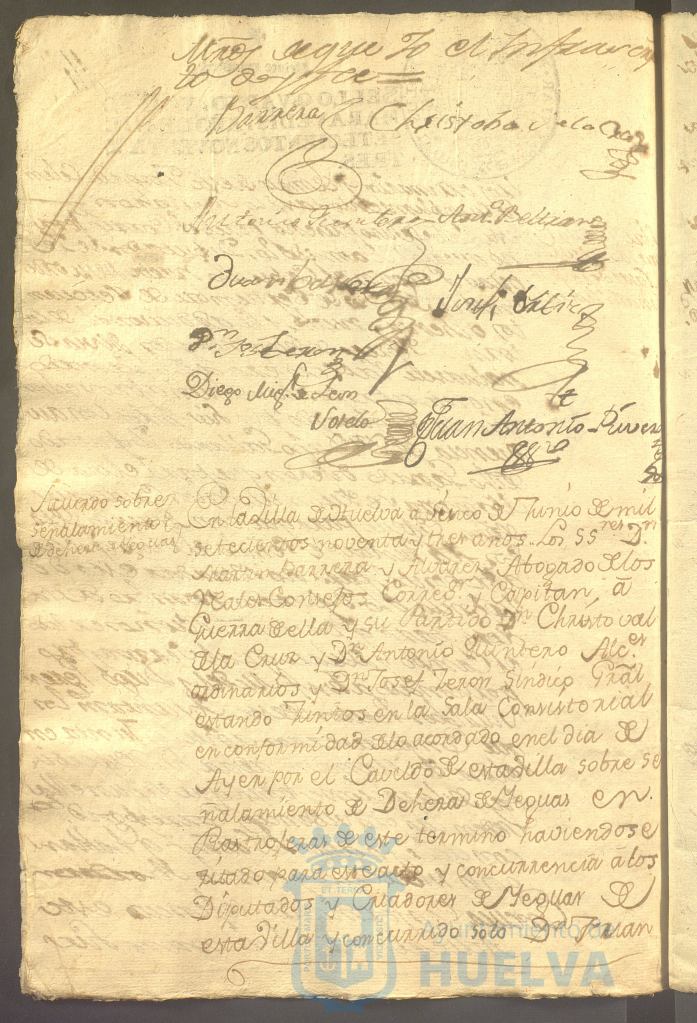 Mrds de que Yo el Infraescrip
to doy fee =
Barrera Christobal de la Cruz
Antonio Quintero Anto. Beltran
Juan de
Josef Ortiz
Dn Josef Zeron
Diego Migl. de Leon
Sotelo
Juan Antonio Rivera
Acuerdo sobre
señalamiento
de dehesa a Yeguas
En la Villa de Huelva a cinco de Junio de mil
setecientos noventa y tres años. Los SSres Dn
Barrera y Alvarez Abogado de los
Reales Consejos Corregor. y Capitan, â
Guerra de ella y su Partido Dn Christoval
de la Cruz y Dn Antonio Quintero Alces.
ordinarios y Dn Josef Zeron Sindico Gral
estando Juntos en la Sala Consistorial
en conformidad de lo acordado en el dia de
Ayer por el Caveldo de esta Villa sobre se
ñalamiento de Dehesa de Yeguas en
Rastrojeras de este termino haviendose
zitado para este acto y concurrencia â los
Diputados y Criadores de Yeguas de
esta Villa y concurrido solo Dn Juan
Ayuntamiento de
HUELVA